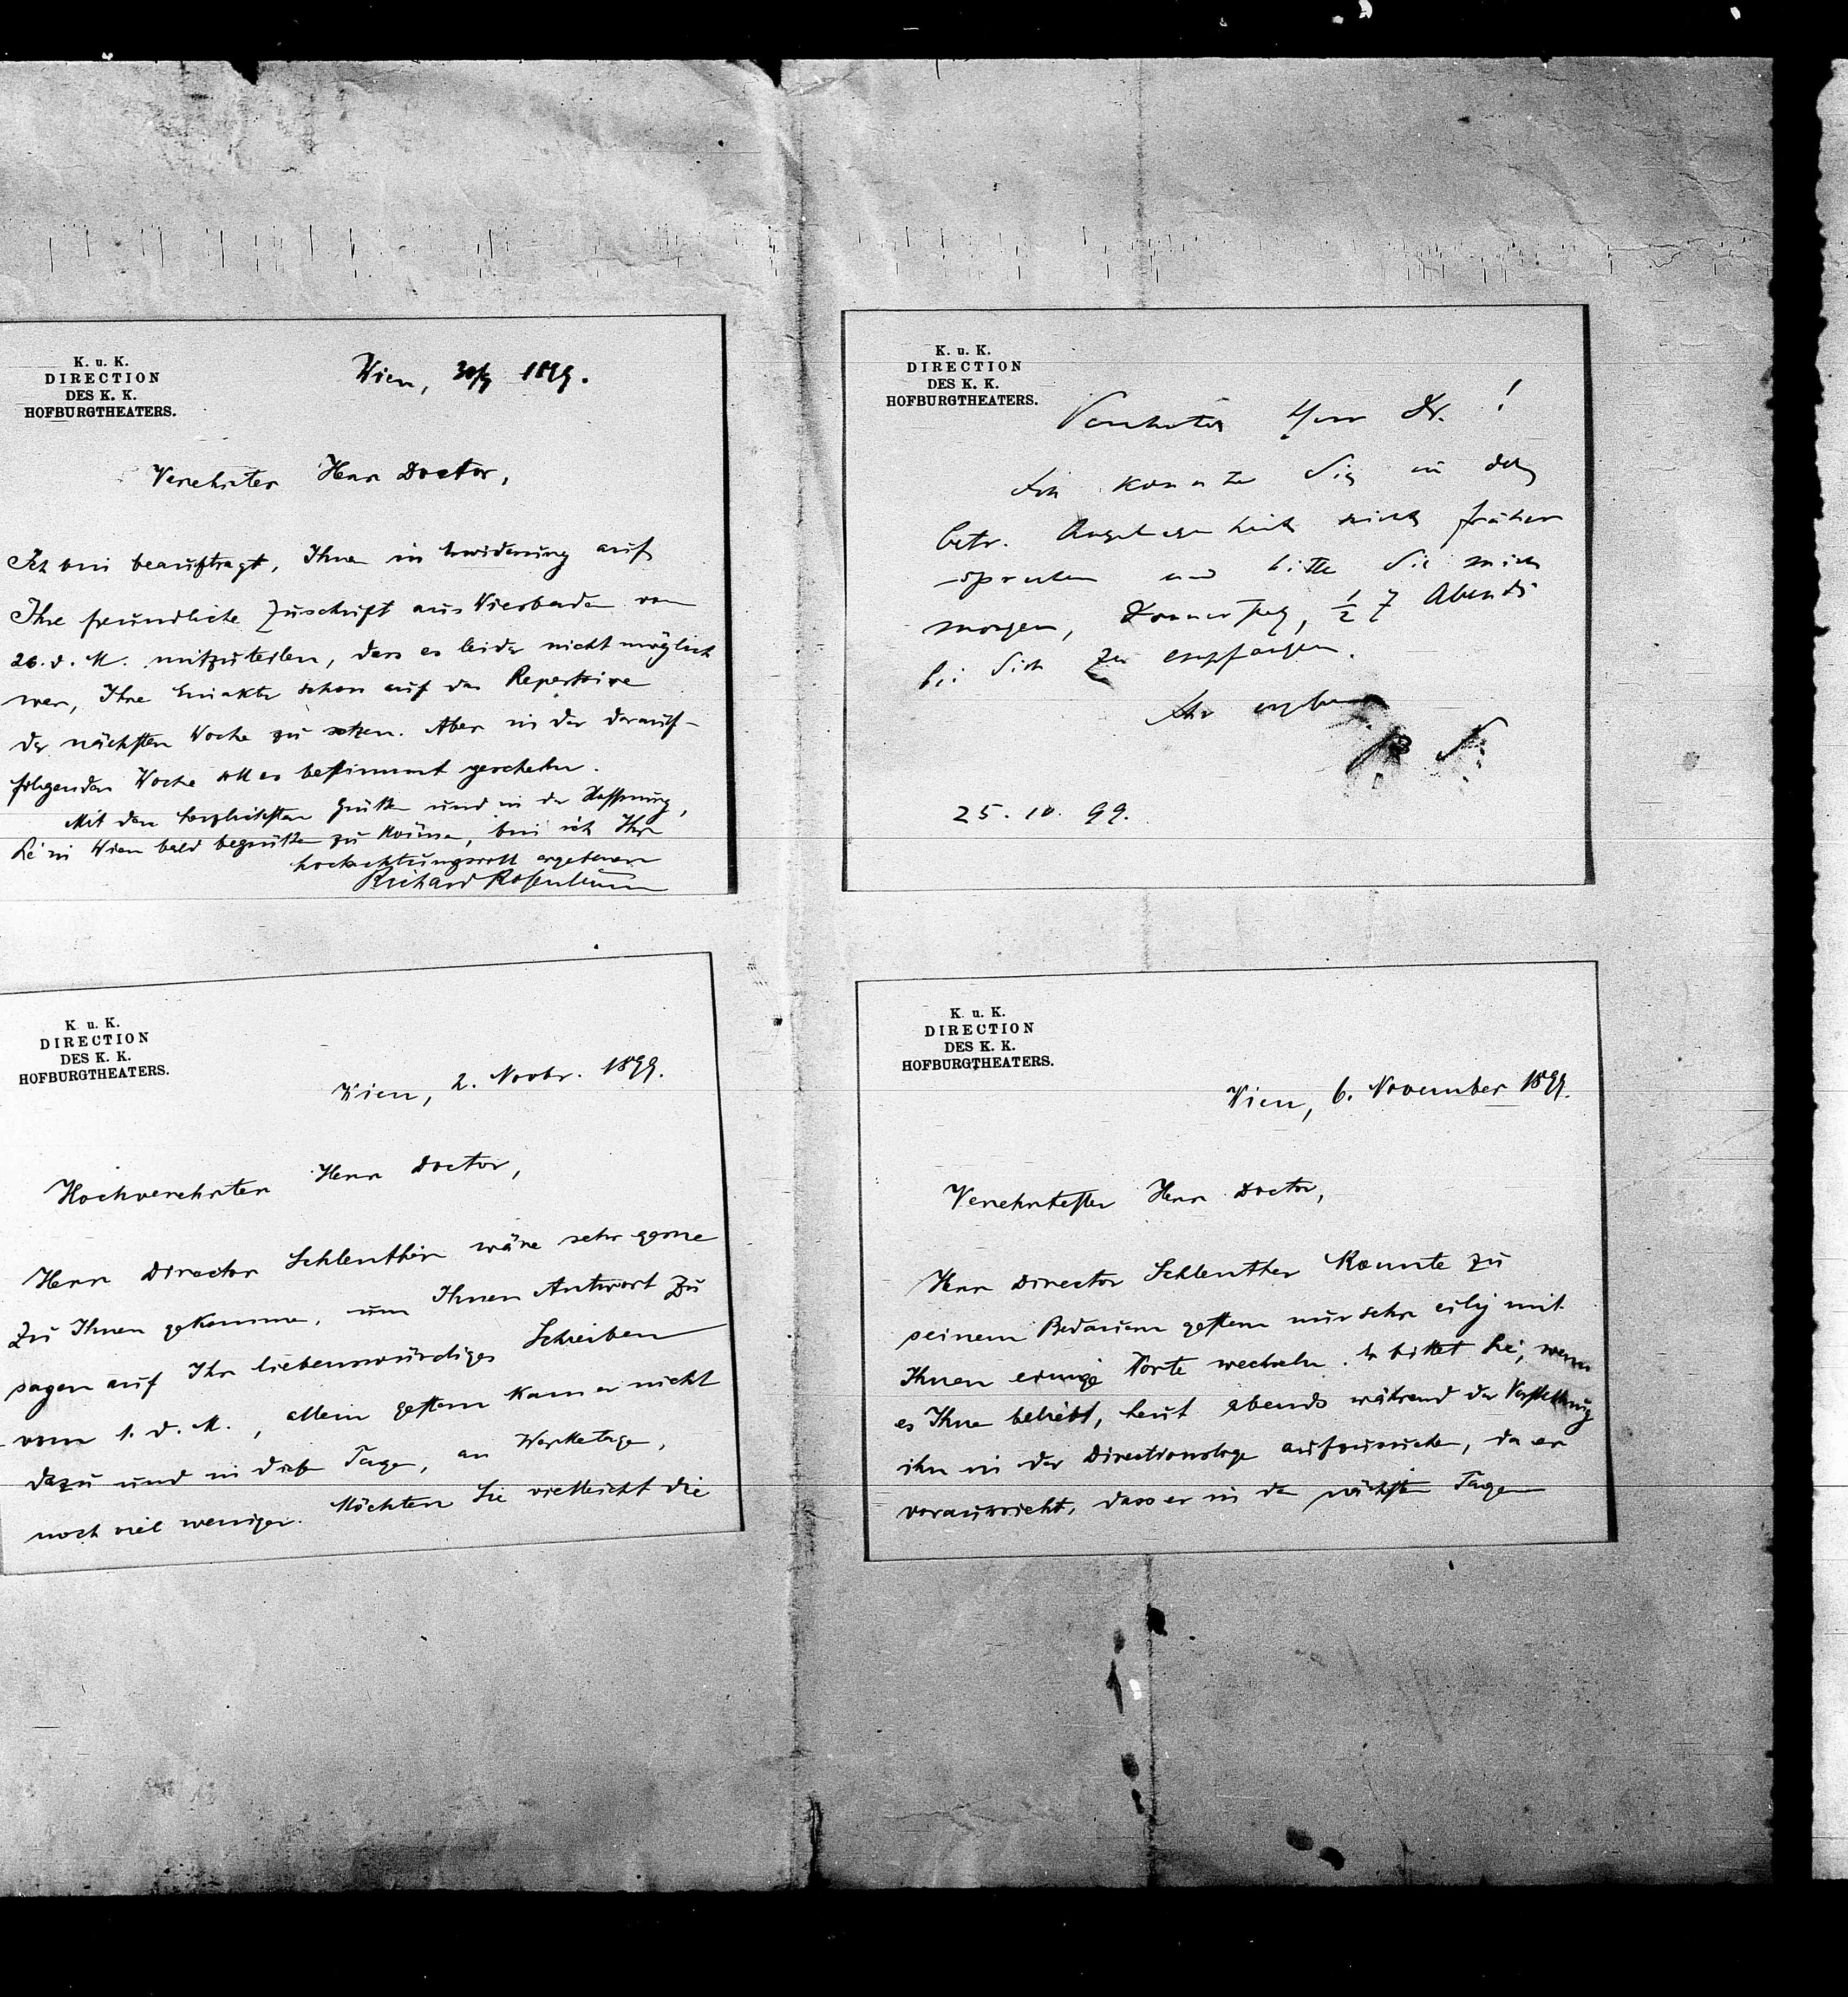 K. u. K.
DIRECTION
DES K. K.
HOFBURGTHEATERS.
Wien, 30/9 1899.
Verehrter Herr Doctor,
Ich bin beauftragt, Ihnen in Erwiderung auf
Ihre freundliche Zuschrift aus Wiesbaden vom
26. d. M. mitzuteilen, dass es leider nicht möglich
war, Ihre Einakter schon auf das Repertoire
der nächsten Woche zu setzen. Aber in der darauf-
folgenden Woche soll es bestimmt geschehen.
Mit den herzlichsten Grüßen und in der Hoffnung,
Sie in Wien bald begrüßen zu können, bin ich Ihr
hochachtungsvoll ergebener
Richard Rosenbaum
K. u. K.
DIRECTION
DES K. K.
HOFBURGTHEATERS.
Verehrter Herr Dr.!
Ich konnte Sie in der
betr. Angelegenheit nicht früher
sprechen und bitte Sie mich
morgen, Donnerstag, ½ 7 Abends
bei Sich zu empfangen.
Ihr ergebener
25. 10. 99.
K. u. K.
DIRECTION
DES K. K.
HOFBURGTHEATERS.
Wien, 2. Novbr. 1899.
Hochverehrter Herr Doctor,
Herr Director Schlenther wäre sehr gerne
zu Ihnen gekommen, um Ihnen Antwort zu
sagen auf Ihr liebenswürdiges Schreiben
vom 1. d. M., allein gestern kam er nicht
dazu und in diesen Tagen, an Werketage,
noch viel weniger. Möchten Sie vielleicht die
K. u. K.
DIRECTION
DES K. K.
HOFBURGTHEATERS.
Wien, 6. November 1899.
Verehrtester Herr Doctor,
Herr Director Schlenther konnte zu
seinem Bedauern gestern nur sehr eilig mit
Ihnen einige Worte wechseln. Er bittet Sie, wenn
es Ihnen beliebt, heut abends während der Vorstellung
ihn in der Directionsloge aufzusuchen, da er
voraussieht, dass er in den nächsten Tagen